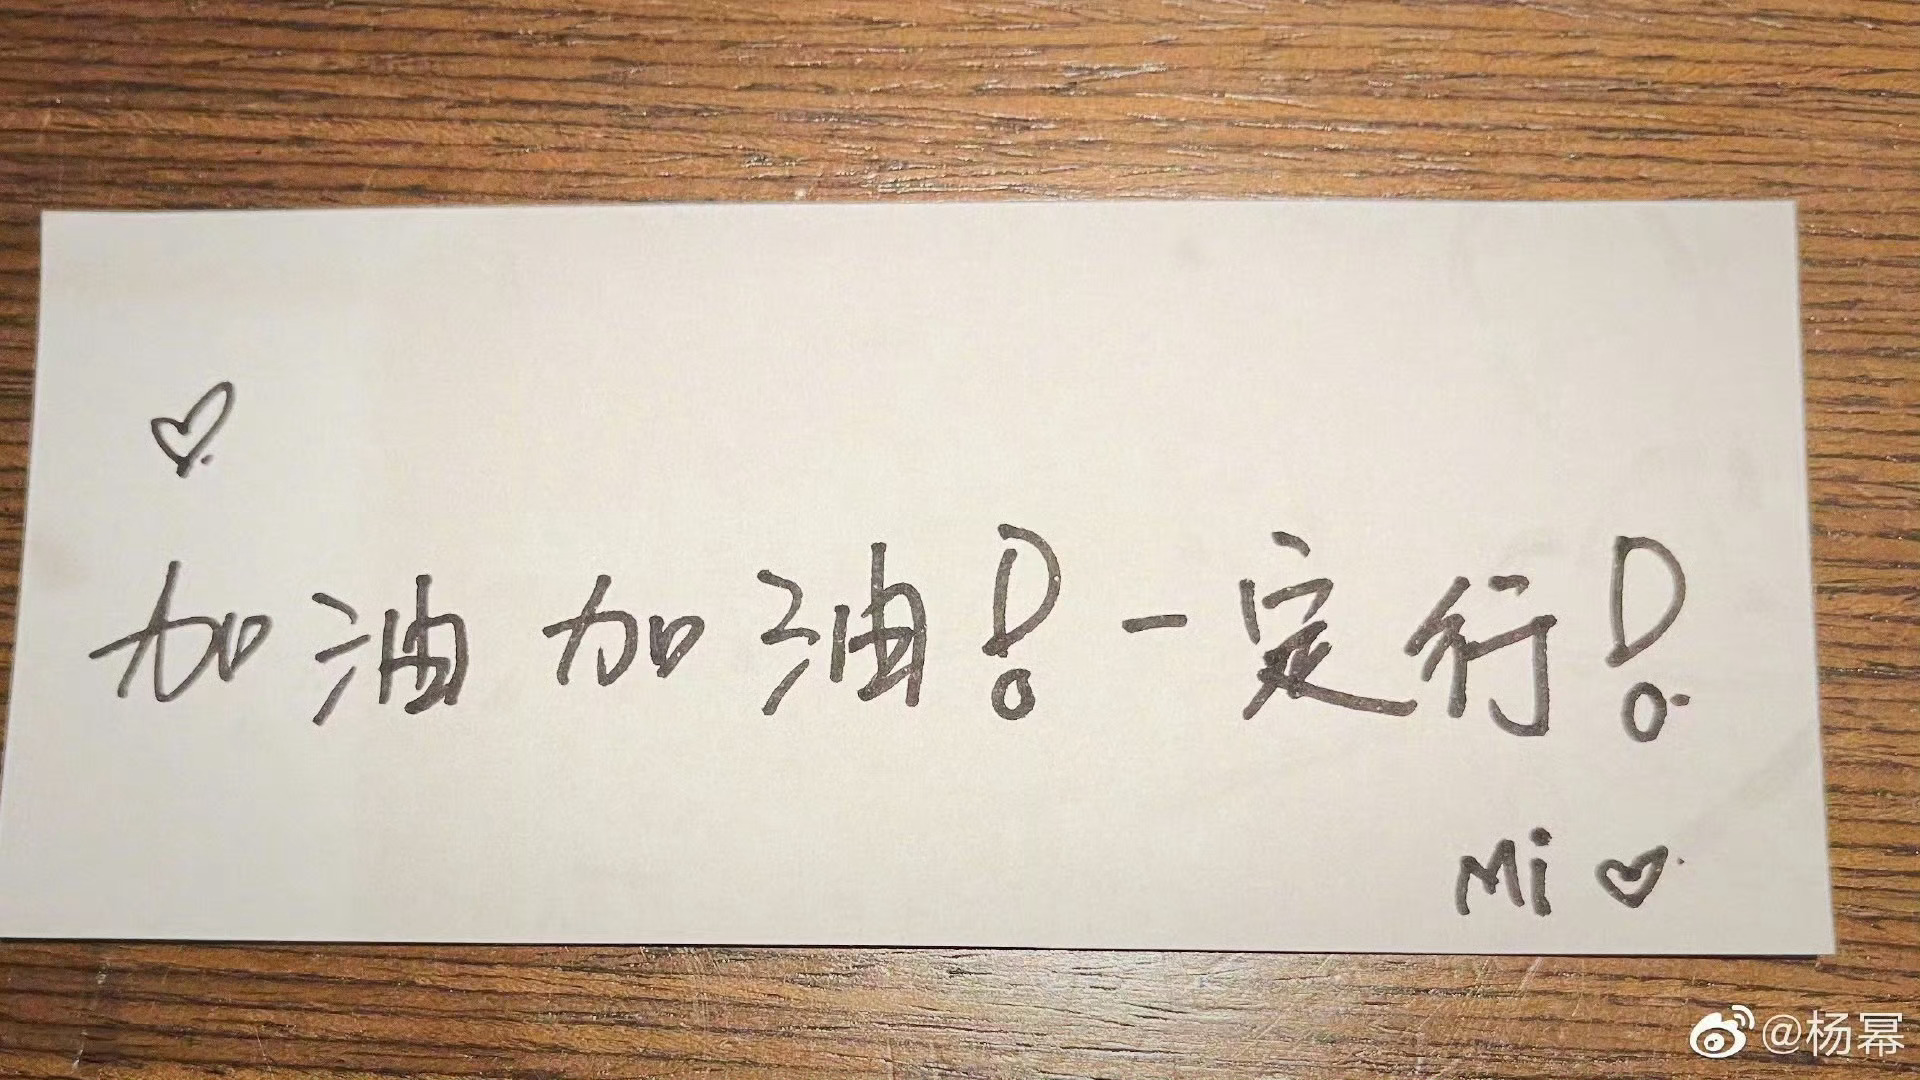 加油加油！一定行！
Mi
@杨幂